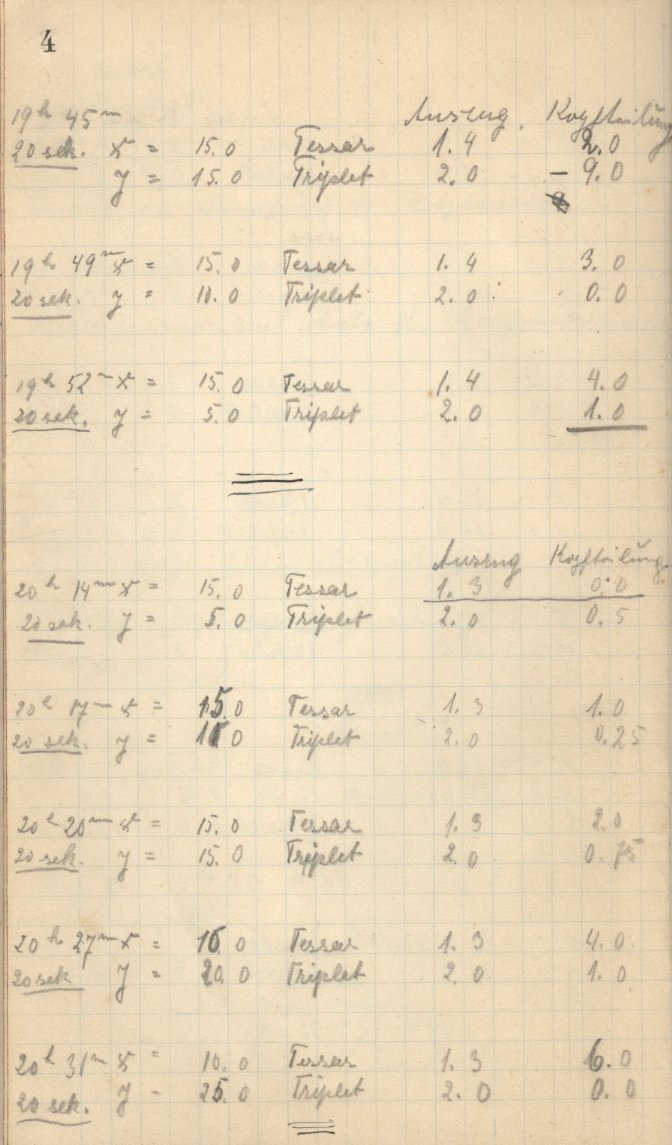 4
19h 45m Auszug. Kopfteilung
20 sek. x = 15.0 Tessar 1.4 2.0
y = 15.0 Triplet 2.0 - 9.0
19h 49m x = 15.0 Tessar 1.4 3.0
20 sek. y = 10.0 Triplet 2.0 0.0
19h 52m x = 15.0 Tessar 1.4 4.0
20 sek. y = 5.0 Triplet 2.0 1.0
Auszug Kopfteilung
20h 14m x = 15.0 Tessar 1.3 0.0
20 sek. y = 5.0 Triplet 2.0 0.5
20h 17m x = 15.0 Tessar 1.3 1.0
20 sek. y = 10 Triplet 2.0 0.25
20h 20m x = 15.0 Tessar 1.3 2.0
20 sek. y = 15.0 Triplet 2.0 0.75
20h 27m x = 10.0 Tessar 1.3 4.0
20 sek y = 20.0 Triplet 2.0 1.0
20h 31m x = 10.0 Tessar 1.3 6.0
20 sek. y - 25.0 Triplet 2.0 0.0